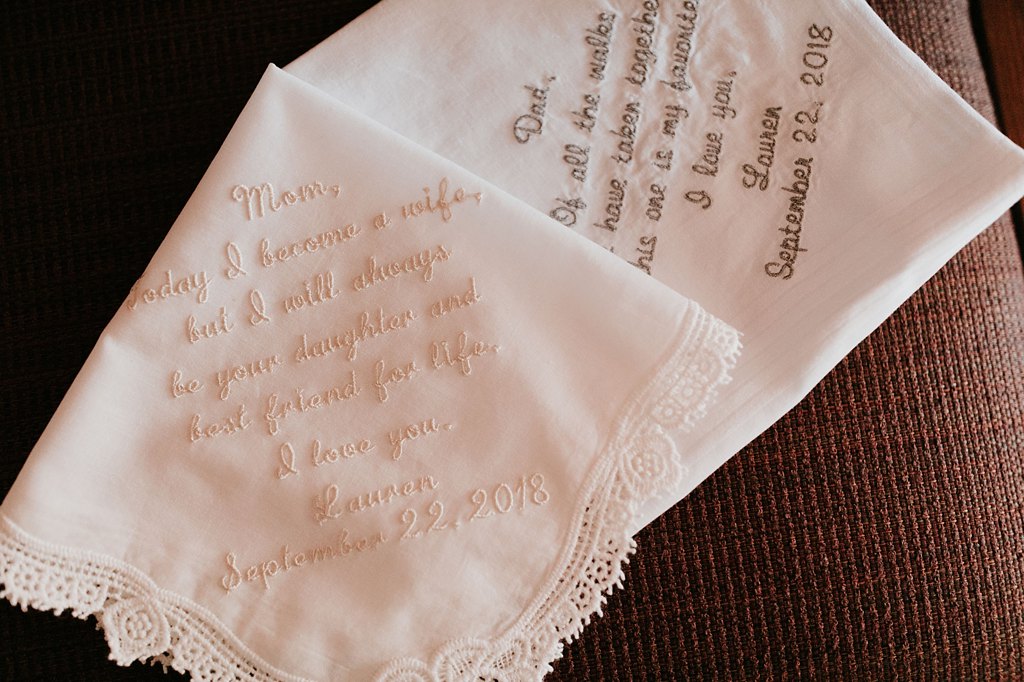 Mom,
Today I become a wife,
but I will always
be your daughter and
best friend for life.
I love you.
Lauren
September 22, 2018
Dad,
Of all the walks
have taken together
this one is my favorite
I love you.
Lauren
September 22, 2018